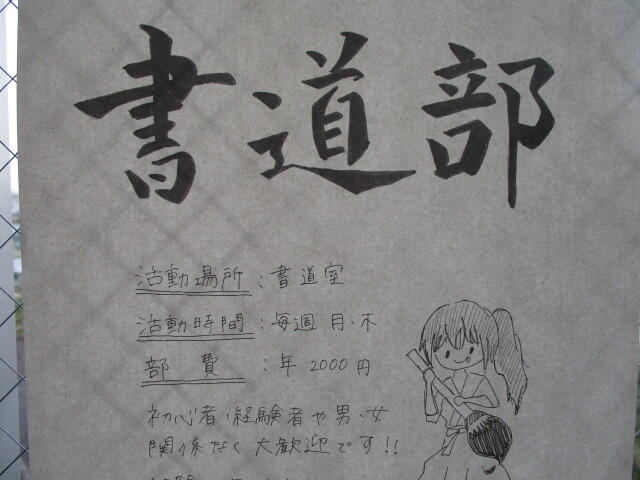 書道部
活動場所：書道室
活動時間：毎週月、木
部費：年2000円
初心者・経験者や男、女
関係なく大歓迎です!!